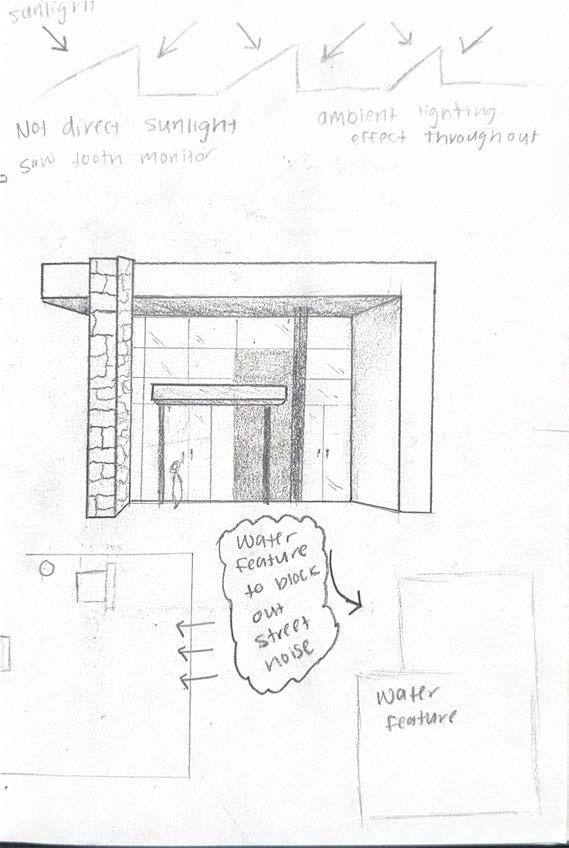 sunlight
Not direct sunlight
saw tooth monitor
ambient lighting
effect throughout
Water
feature
to block
out
street
noise
Water
feature